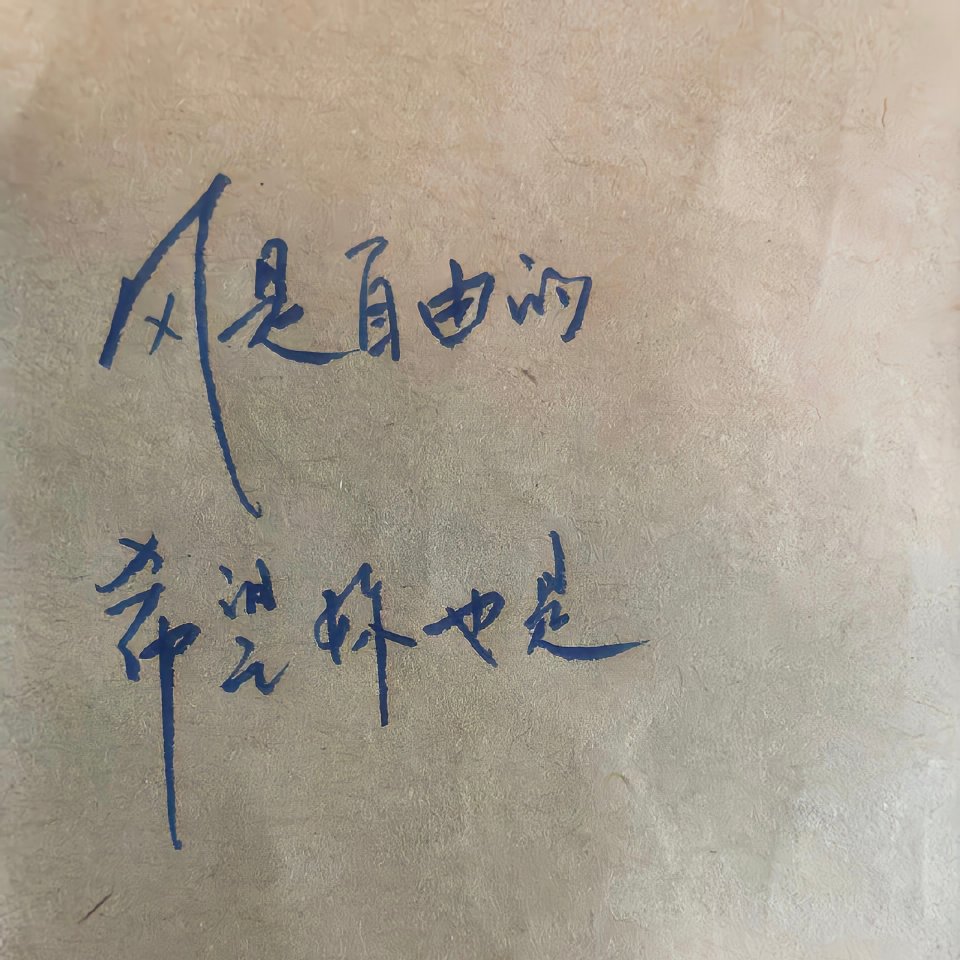 风是自由的
希望妳也是